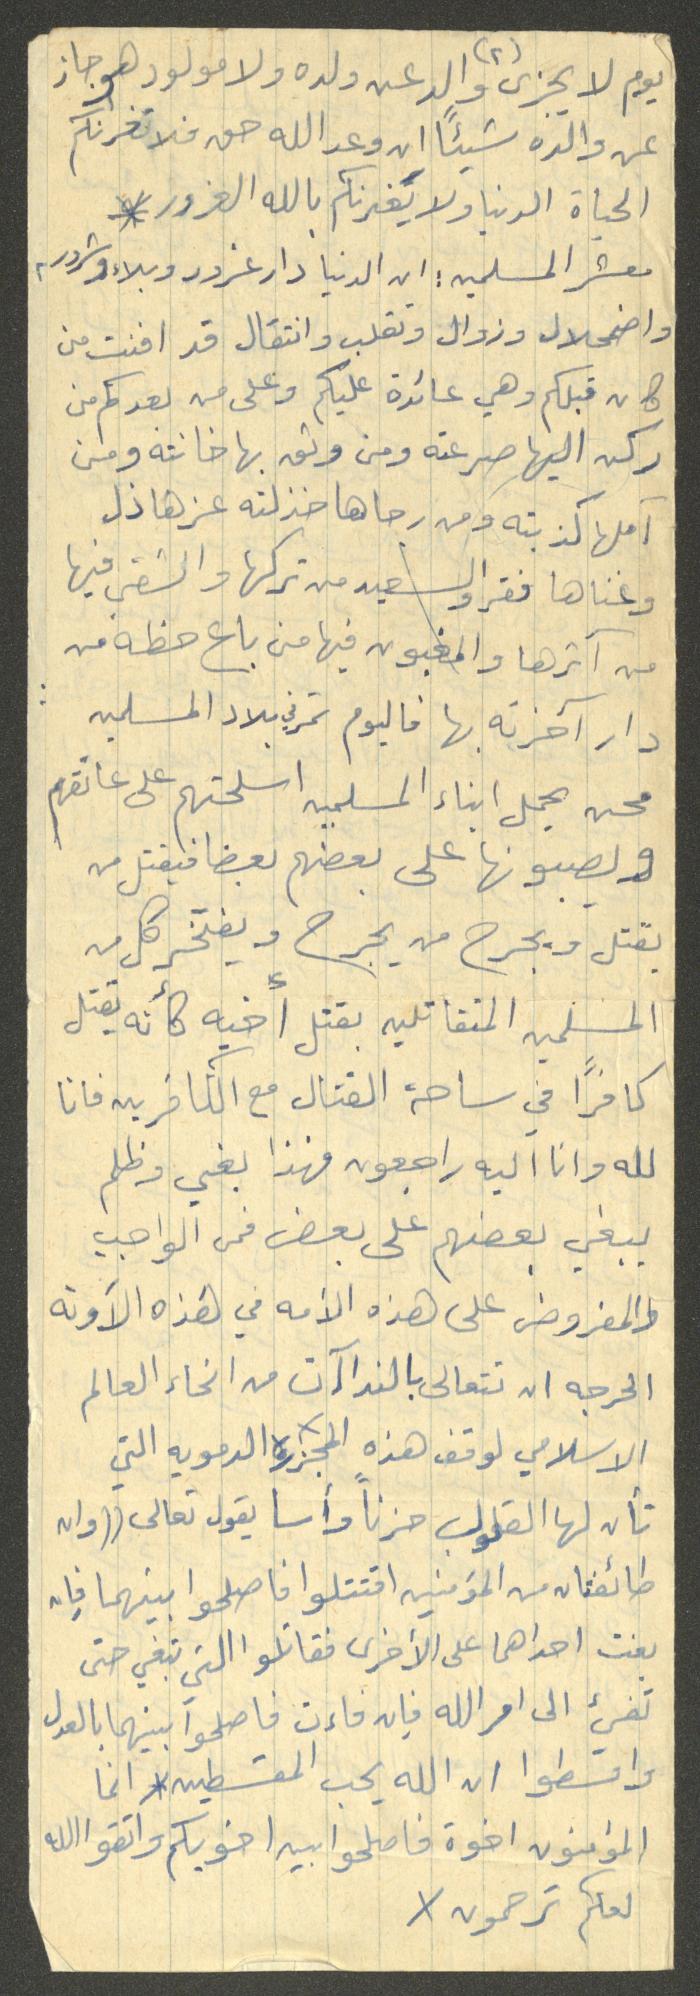 (٢)
يوم لا يجزى والد عن ولده ولا مولود هو جاز
عن والده شيئًا ان وعد الله حق فلا تغرنكم
الحياة الدنيا ولا يغرنكم بالله الغرور *
معشر المسلمين : ان الدنيا دار غرور وبلاء وشرور
واضمحلال وزوال وتقلب وانتقال قد افنت من
كان قبلكم وهي عائدة عليكم وعلى من بعدكم من
ركن اليها صرعته ومن وثق بها خانته ومن
آملها كذبته ومن رجاها خذلته عزها ذل
وغناها فقر والسعيد من تركها والشقى فيها
من آثرها والمغبون فيها من باع حظه من
دار آخرته بها فاليوم تمر في بلاد المسلمين :
محن يحمل ابناء المسلمين اسلحتهم على عاتقهم
ويصبونها على بعضهم بعضا فيقتل من
يقتل ويجرح من يجرح ويفتخر كل من
المسلمين المتقاتلين بقتل أخيه كأنه يقتل
كافرًا في ساحة القتال مع الكافرين فانا
لله وانا اليه راجعون فهذا بغي وظلم
يبغي بعضهم على بعض فمن الواجب
والمفروض على هذه الأمه في هذه الآونه
الحرجه ان تتعالى بالنداآت من انحاء العالم
الاسلامي لوقف هذه المجزره الدمويه التي
تأن لها القلوب حزناً وأسا يقول تعالى ((وان
طائفتان من المؤمنين اقتتلوا فاصلحوا بينهما فإن
بغت احداهما على الأخرى فقاتلوا التي تبغي حتى
تفيء الى امر الله فإن فاءت فاصلحوا بينهما بالعدل
واقسطوا ان الله يحب المقسطين * انما
المؤمنون اخوة فاصلحوا بين اخويكم واتقوا الله
لعلكم ترحمون ×